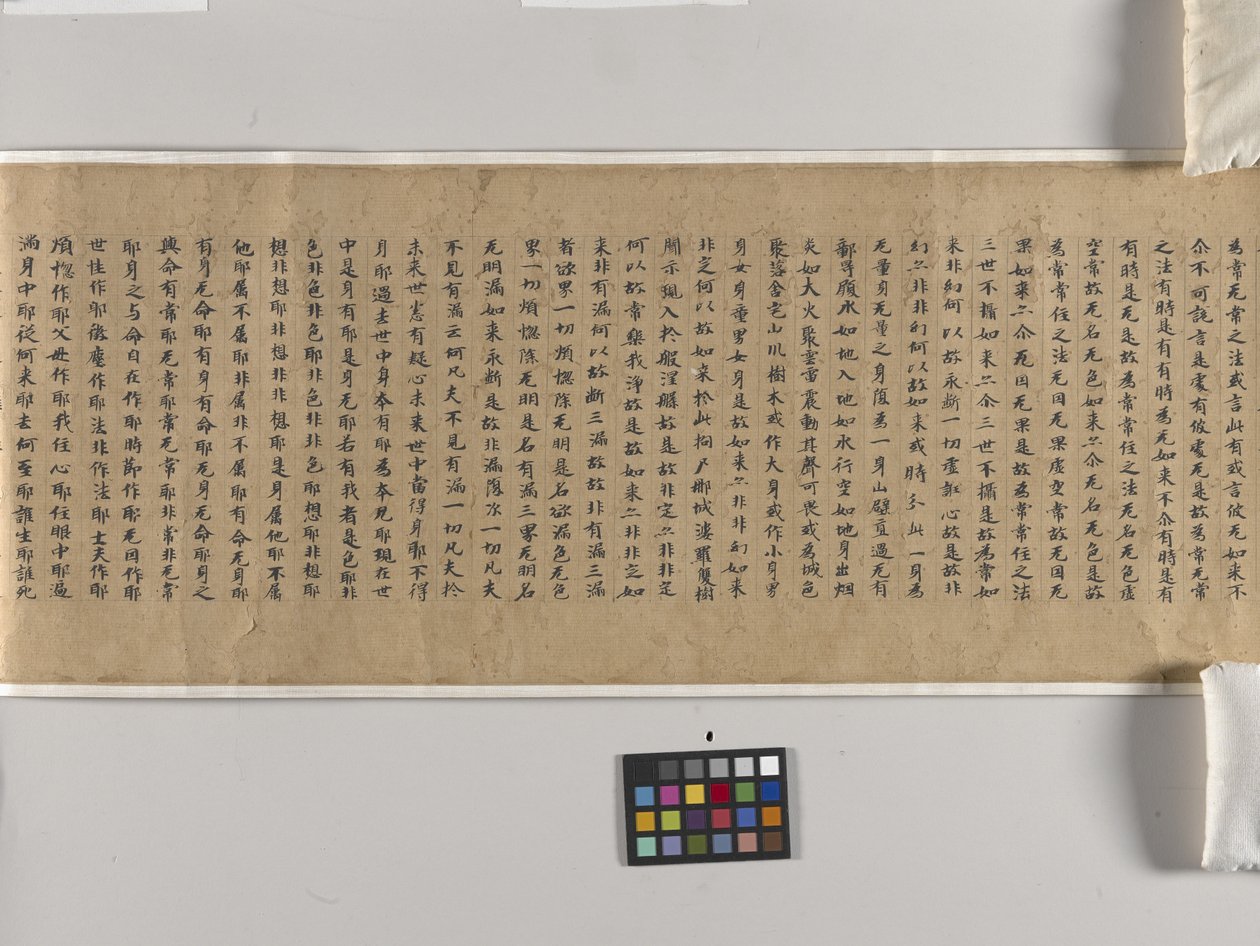 為常无常之法或言此有或言彼无如来不
尒不可說言是處有彼處无是故為常无常
之法有時是有有時為无如来不尒有時是有
有時是无是故為常常住之法无名无色虛
空常故无名无色如来亦尒无名无色是故
為常常住之法无因无果虛空常故无因无
果如来亦尒无因无果是故為常常住之法
三世不攝如来亦尒三世不攝是故為常如
来非幻何以故永断一切虛誑心故是故非
幻亦非非幻何以故如来或時分此一身為
无量身无量之身復為一身山壁直過无有
鄣㝵履水如地入地如水行空如地身出烟
炎如大火聚雲雷震動其聲可畏或為城邑
聚落舍宅山川樹木或作大身或作小身男
身女身童男女身是故如来亦非非幻如来
非定何以故如来於此拘尸那城娑羅雙樹
間示現入於般涅槃故是故非定亦非非定
何以故常樂我淨故是故如来亦非非定如
来非有漏何以故断三漏故故非有漏三漏
者欲界一切煩惚除无明是名欲漏色无色
界一切煩惚除无明是名有漏三界无明名
无明漏如来永断是故非漏復次一切凡夫
不見有漏云何凡夫不見有漏一切凡夫於
未来世悉有疑心未来世中當得身耶不得
身耶過去世中身本有耶為本无耶現在世
中是身有耶是身无耶若有我者是色耶非
色非色非色耶非色非非色耶想耶非想耶
想非想耶非想非非想耶是身属他耶不属
他耶属不属耶非属非不属耶有命无身耶
有身无命耶有身有命耶无身无命耶身之
與命有常耶无常耶常无常耶非常非无常
耶身之与命自在作耶時節作耶无因作耶
世性作耶微塵作耶法非作法耶士夫作耶
煩惚作耶父母作耶我住心耶住眼中耶遍
滿身中耶従何来耶去何至耶誰生耶誰死